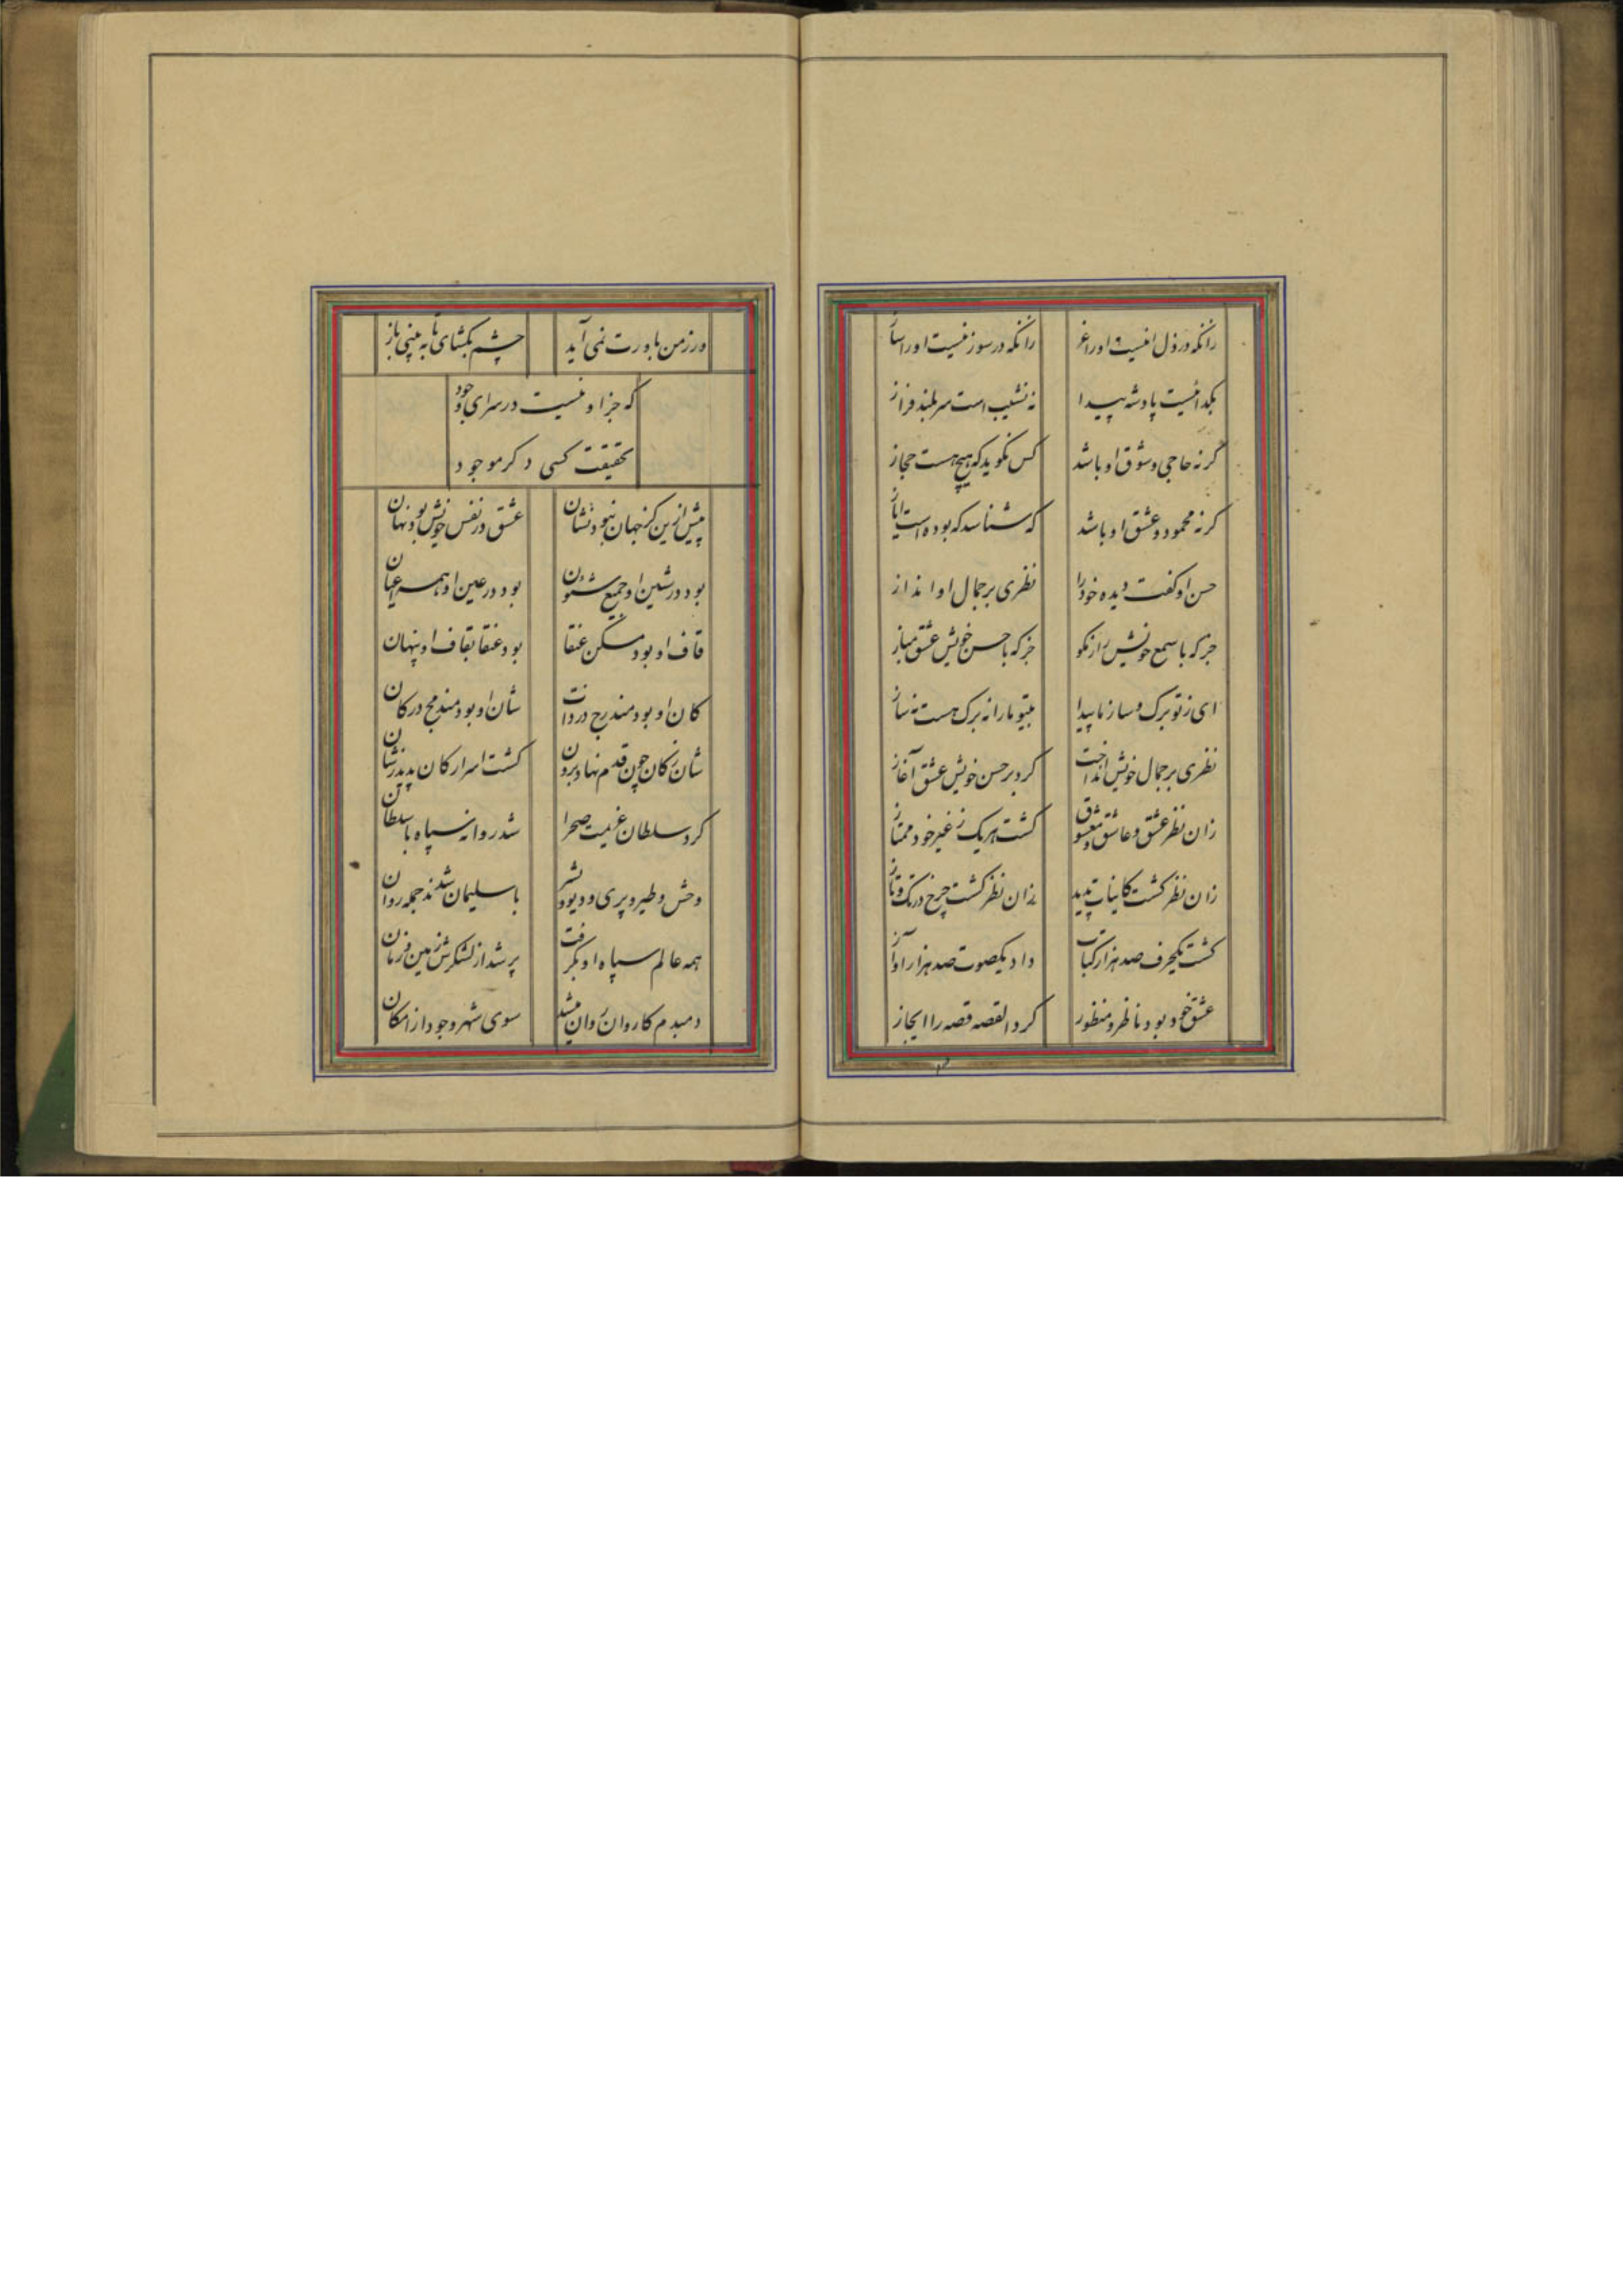 زانکه در ذل نیست او را عز زانکه در سوز نیست او را ساز
بگدا نیست پادشه پیدا نه نشیب است سر بلند فراز
گر نه حاجی و شوق او باشد کس نگوید که هیچ هست حجاز
گر نه محمود و عشق او باشد که شناسد که بوده است ایاز
حسن او گفت دیده خود را نظری بر جمال او انداز
جز که با سمع خویش راز مگو جز که با حسن خویش عشق مباز
ای ز تو برگ و ساز ما پیدا بیتو ما را نه برگ هست نه ساز
نظری بر جمال خویش انداخت کرد بر حسن خویش عشق آغاز
زان نظر عشق و عاشق و معشوق گشت هر یک ز غیر خود ممتاز
زان نظر گشت کاینات پدید زان نظر گشت چرخ در تک و تاز
گشت یکحرف صد هزار کتاب داد یکصوت صد هزار آواز
عشق خود بود ناظر و منظور کرد القصه قصه را ایجاز
ور ز من باورت نمی آید چشم بگشای تا به بینی باز
که جز او نیست در سرای وجود
بحقیقت کسی دگر موجود
پیش ازین کز جهان نبود نشان عشق در نفس خویش بود نهان
بود در شین او جمیع شئون بود در عین او همه اعیان
قاف او بود مسکن عنقا بود عنقا بقاف او پنهان
کان او بود مندرج در ذات شان او بود مندمج در کان
شان ز کان چون قدم نهاد برون گشت اسرار کان پدید ز شان
کرد سلطان عزیمت صحرا شد روانه سپاه با سلطان
وحش و طیر و پری و دیو و بشر با سلیمان شدند جمله روان
همه عالم سپاه او بگرفت پر شد از لشکرش زمین و زمان
دمبدم کاروان روان میشد سوی شهر وجود از امکان